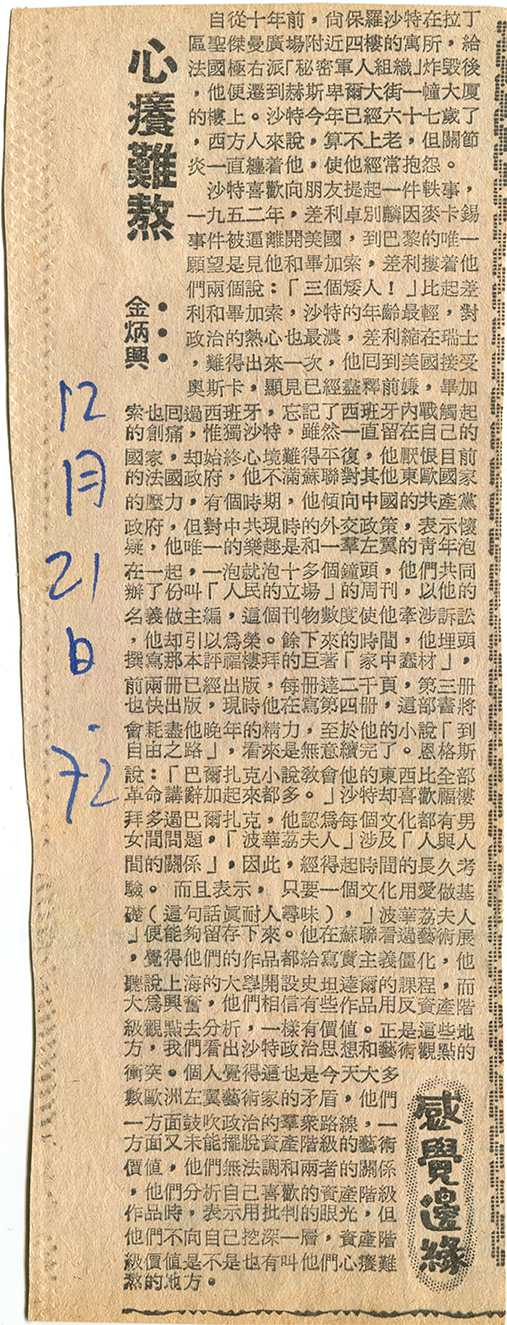 心癢難熬
金炳興
自從十年前，尚保羅沙特在拉丁
區聖傑曼廣場附近四樓的寓所，給
法國極右派「秘密軍人組織」炸毀後
，他便遷到赫斯卑爾大街一幢大廈
的樓上。沙特今年已經六十七歲了
，西方人來說，算不上老，但關節
炎一直纏着他，使他經常抱怨。
沙特喜歡向朋友提起一件軼事，
一九五二年，差利卓別麟因麥卡錫
事件被逼離開美國，到巴黎的唯一
願望是見他和畢加索，差利摟着他
們兩個說：「三個矮人！」比起差
利和畢加索，沙特的年齡最輕，對
政治的熱心也最濃，差利縮在瑞士
，難得出來一次，他回到美國接受
奧斯卡，顯見已經盡釋前嫌，畢加
索也回過西班牙，忘記了西班牙內戰觸起
的創痛，惟獨沙特，雖然一直留在自己的
國家，却始終心境難得平復，他厭恨目前
的法國政府，他不滿蘇聯對其他東歐國家
的壓力，有個時期，他傾向中國的共產黨
政府，但對中共現時的外交政策，表示懷
疑，他唯一的樂趣是和一羣左翼的青年泡
在一起，一泡就泡十多個鐘頭，他們共同
辦了份叫「人民的立場」的周刊，以他的
名義做主編，這個刊物數度使他牽涉訴訟
，他却引以爲榮。餘下來的時間，他埋頭
撰寫那本評福樓拜的巨著「家中蠢材」，
前兩册已經出版，每册達二千頁，第三册
也快出版，現時他在寫第四册，這部書將
會耗盡他晚年的精力，至於他的小說「到
自由之路」，看來是無意續完了。恩格斯
說：「巴爾扎克小說教會他的東西比全部
革命講辭加起來都多。」沙特却喜歡福樓
拜多過巴爾扎克，他認爲每個文化都有男
女間問題，「波華荔夫人」涉及「人與人
間的關係」，因此，經得起時間的長久考
驗。而且表示，只要一個文化用愛做基
礎（這句話眞耐人尋味），「波華荔夫人
」便能夠留存下來。他在蘇聯看過藝術展
，覺得他們的作品都給寫實主義僵化，他
聽說上海的大學開設史坦達爾的課程，而
大爲興奮，他們相信有些作品用反資產階
級觀點去分析，一樣有價值。正是這些地
方，我們看出沙特政治思想和藝術觀點的
衝突。個人覺得這也是今天大多
數歐洲左翼藝術家的矛盾，他們
一方面鼓吹政治的羣衆路線，一
方面又未能擺脫資產階級的藝術
價值，他們無法調和兩者的關係
，他們分析自己喜歡的資產階級
作品時，表示用批判的眼光，但
他們不向自己挖深一層，資產階
級價值是不是也有叫他們心癢難
熬的地方。
感覺邊緣
12
月
21
日
72